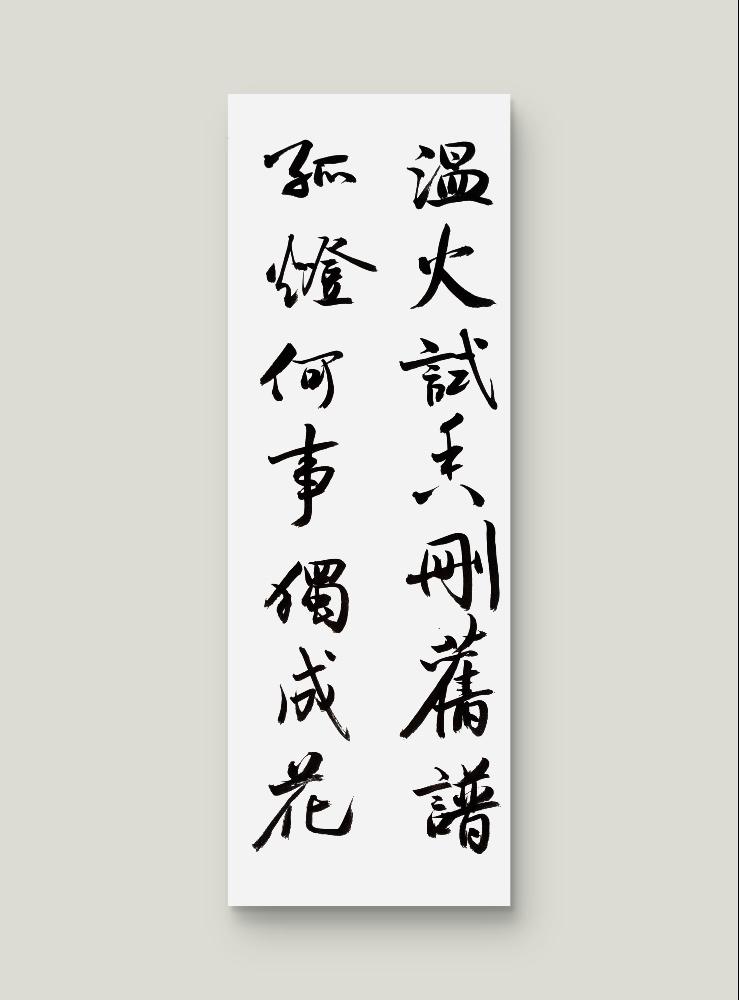 溫火試香刪舊譜
孤燈何事獨成花